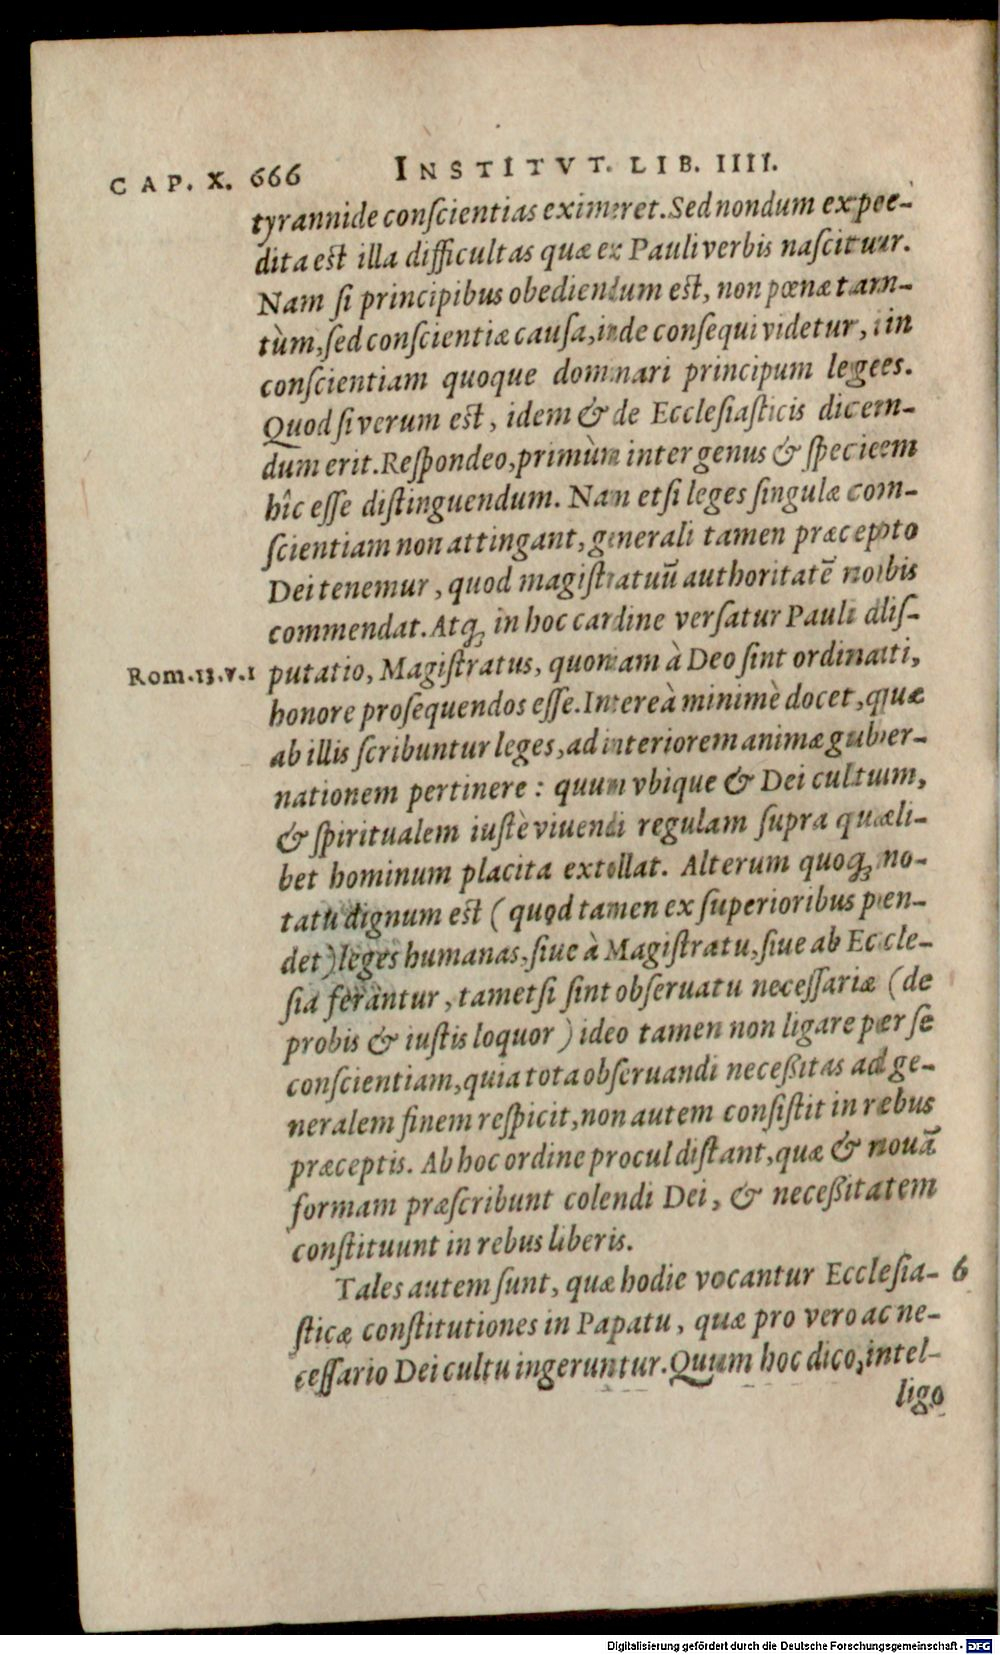 CAP. X. 666 INSTITVT. LIB. IIII.
tyrannide conſcientias eximeret. Sed nondum expe-
dita est illa difficultas quæ ex Pauli verbis naſcitur.
Nam ſi principibus obediendum est, non pœnæ tan-
tùm, ſed conſcientiæ cauſa, inde conſequi videtur, in
conſcientiam quoque dominari principum leges.
Quod ſi verum est, idem & de Eccleſiaſticis dicen-
dum erit. Reſpondeo, primùm inter genus & ſpeciem
hîc eſſe diſtinguendum. Nam etſi leges ſingulæ con-
ſcientiam non attingant, generali tamen præcepto
Dei tenemur, quod magiſtratuũ authoritatẽ nobis
commendat. Atq; in hoc cardine verſatur Pauli diſ-
Rom.13.v.1 putatio, Magiſtratus, quoniam à Deo ſint ordinati,
honore proſequendos eſſe. Intereà minimè docet, quæ
ab illis ſcribuntur leges, ad interiorem animæ guber-
nationem pertinere : quum vbique & Dei cultum,
& ſpiritualem iuſtè viuendi regulam ſupra quæli-
bet hominum placita extollat. Alterum quoq; no-
tatu dignum est ( quod tamen ex ſuperioribus pen-
det ) leges humanas, ſiue à Magiſtratu, ſiue ab Eccle-
ſia ferantur, tametſi ſint obſeruatu neceſſariæ ( de
probis & iuſtis loquor ) ideo tamen non ligare per ſe
conſcientiam, quia tota obſeruandi neceßitas ad ge-
neralem finem reſpicit, non autem conſiſtit in rebus
præceptis. Ab hoc ordine procul diſtant, quæ & nouã
formam præſcribunt colendi Dei, & neceßitatem
conſtituunt in rebus liberis.
Tales autem ſunt, quæ hodie vocantur Eccleſia- 6
ſticæ conſtitutiones in Papatu, quæ pro vero ac ne-
ceſſario Dei cultu ingeruntur. Quum hoc dico, intel-
ligo
Digitalisierung gefördert durch die Deutsche Forschungsgemeinschaft - DFG